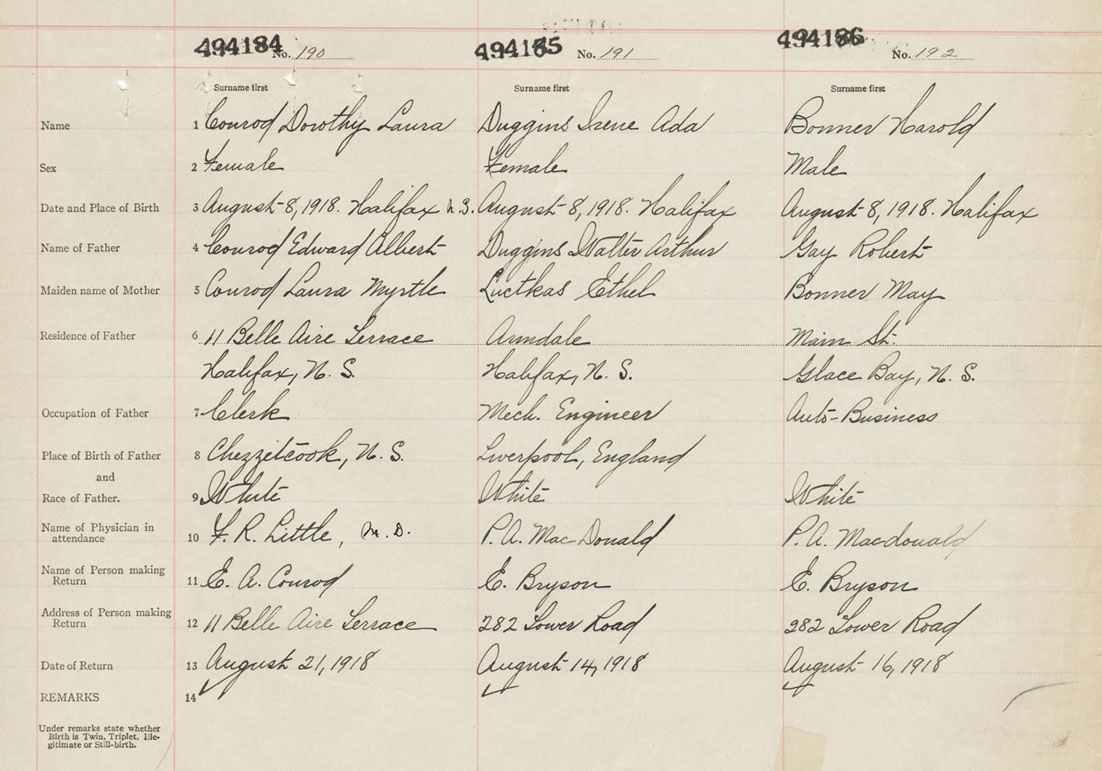 494184 No. 190 494185 No. 191 494186 No. 192
Surname first Surname first Surname first
Name 1 Conrod Dorothy Laura Duggins Irene Ada Bonner Harold
Sex 2 Female Female Male
Date and Place of Birth 3 August 8, 1918. Halifax N.S. August 8, 1918. Halifax August 8, 1918. Halifax
Name of Father 4 Conrod Edward Albert Duggins Walter Arthur Gay Robert
Maiden name of Mother 5 Conrod Laura Myrtle Ethel Bonner May
Residence of Father 6 11 Belle Aire Terrace Armdale Main St.
Halifax, N. S. Halifax, N. S. Glace Bay, N. S.
Occupation of Father 7 Clerk Mech. Engineer Auto-Business
Place of Birth of Father 8 Chezzetcook, N. S. Liverpool, England
and
Race of Father. 9 White White White
Name of Physician in attendance 10 F. R. Little, M.D. P. A. MacDonald P. A. Macdonald
Name of Person making Return 11 E. A. Conrod E. Bryson E. Bryson
Address of Person making Return 12 11 Belle Aire Terrace 282 Tower Road 282 Tower Road
Date of Return 13 August 21, 1918 August 14, 1918 August 16, 1918
REMARKS 14
Under remarks state whether
Birth is Twin, Triplet, Ille-
gitimate or Still-birth.